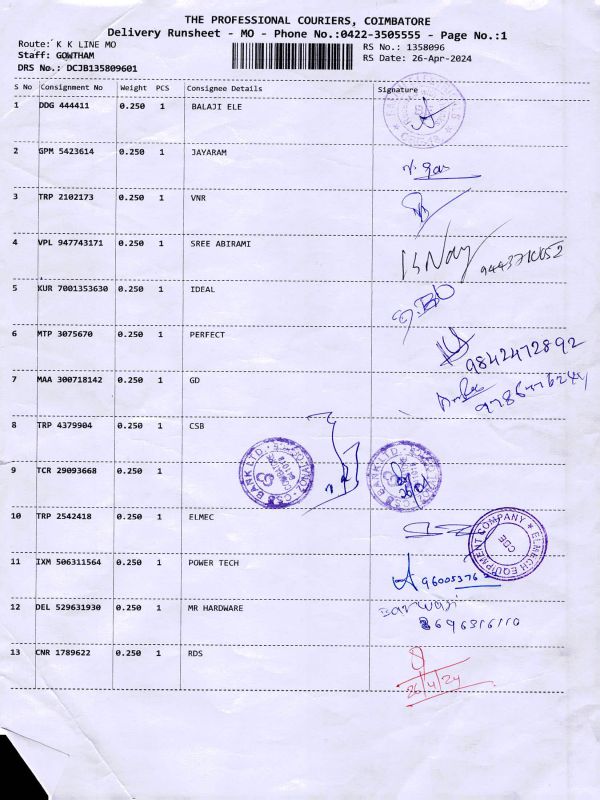 THE PROFESSIONAL COURIERS, COIMBATORE
Delivery Runsheet - MO - Phone No.:0422-3505555 - Page No.:1
Route: K K LINE MO RS No.: 1358096
Staff: GOWTHAM RS Date: 26-Apr-2024
DRS No.: DCJB135809601
S No Consignment No Weight PCS Consignee Details Signature
1 DDG 444411 0.250 1 BALAJI ELE
2 GPM 5423614 0.250 1 JAYARAM
3 TRP 2102173 0.250 1 VNR
4 VPL 947743171 0.250 1 SREE ABIRAMI
5 KUR 7001353630 0.250 1 IDEAL
6 MTP 3075670 0.250 1 PERFECT 9842472892
7 MAA 300718142 0.250 1 GD
8 TRP 4379904 0.250 1 CSB
9 TCR 29093668 0.250 1
10 TRP 2542418 0.250 1 ELMEC ELMECH EQUIPMENT COMPANY CBE
11 IXM 506311564 0.250 1 POWER TECH
12 DEL 529631930 0.250 1 MR HARDWARE
13 CNR 1789622 0.250 1 RDS 26/4/24